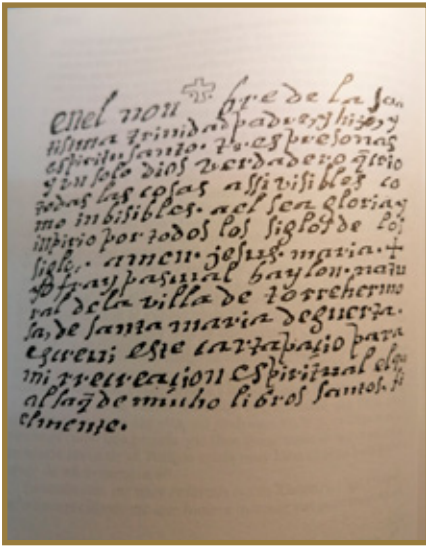 enel non ✠ bre de la san
tisima trinidad padre, y hijo, y
espiritu santo. tres presonas
y un solo dios verdadero q̃ crio
todas las cosas assi visibles co
mo inbisibles. a el sea gloria y
inpirio por todos los siglos de los
siglo. amen. jesus. maria. ✝
yo fray pasqual baylon. natu
ral de la villa de torrehermo
sa, de santa maria de guerta.
escrevi este cartapaçio para
mi rrecreaçion espiritual el qu
al saq̃ de mucho libros santos. fi
elmente.